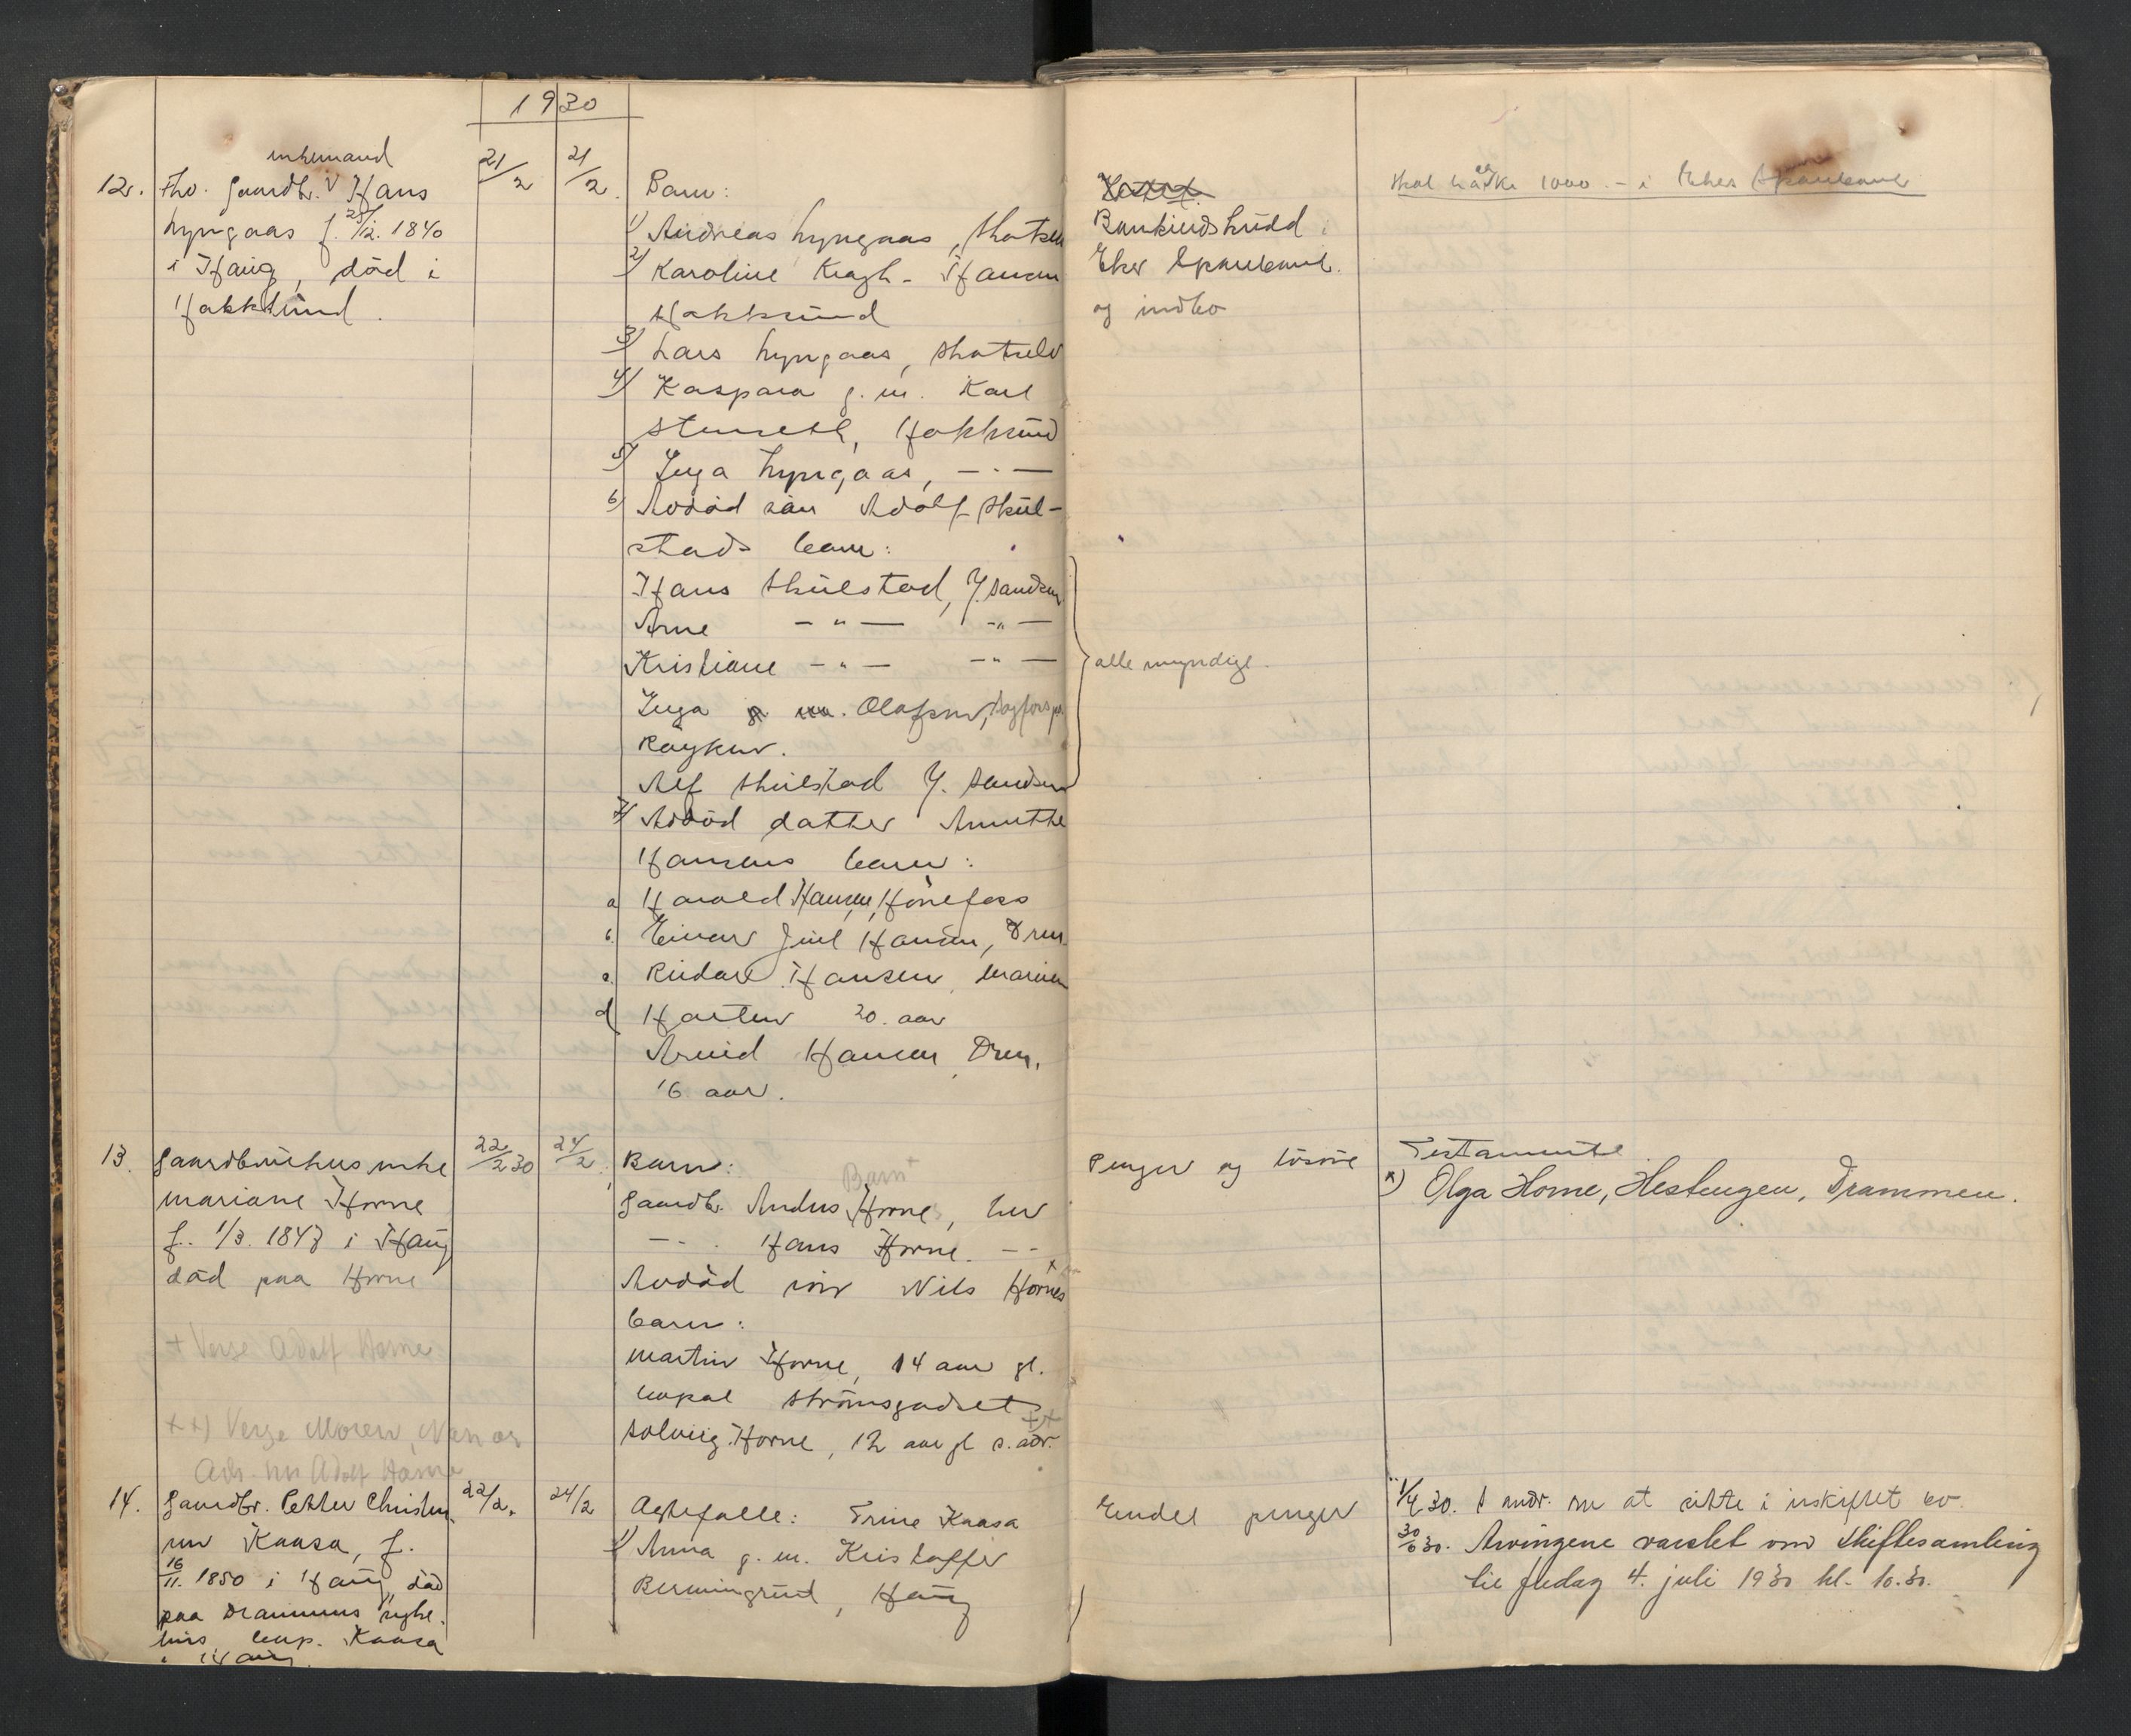 1930
enkemand
12. fhv. Gaardbr. V Hans
Lyngaas f. 25/12. 1840
i Haug, död i
Hokksund.
21/2
21/2.
Barn:
1) Andreas Lyngaas, Skotselv
2) Karoline Kragh-Hansen
Hokksund
3) Lars Lyngaas, Skotselv
4) Kaspara g. m. Karl
Stenseth, Hokksund
5) Inga Lyngaas, — · —
6) Avdöd sön Adolf Skul-
stads barn:
Hans Skulstad, Y. Sandsvær
Arne — " — — " —
Kristiane — " — — " —
Inga g. m. Olafsen,
Röyken.
Alf Skulstad Y. Sandsvær
7) Avdöd datter Annethe
Hansens barn:
a Harald Hansen, Hönefoss
b. Einar Juel Hansen, Drm.
c. Reidar Hansen,
d 20 aar
Arvid Hansen, Drm.
16 aar.
Bankindskudd i
Eker Sparebank.
og indbo
alle myndige.
skal være ca 1000.- i Eker Sparebank
13. Gaardbrukerenke
Mariane Horne
f. 1/3. 1843 i Haug
död paa Horne
+ Verge Adolf Horne
++) Verge Moren,
Adr. hr. Adolf Horne
22/2 30
24/2.
Barn:
Barn+
Gaardbr. Anders Horne, her
— - . Hans Horne. — -
Avdöd sön Nils Hornes x
barn:
Martin Horne, 14 aar gl.
bopæl Strömsgodset
Solveig Horne, 12 aar gl s. adr. ++
Penger og lösöre
Testamente
x) Olga Horne, Hestengen, Drammen.
14. Gaardbr. Petter Christen-
sen Kaasa, f.
16/11. 1850 i Haug, död
paa Drammens syke-
hus, bop. Kaasa
i Haug.
22/2.
24/2
Ægtefælle: Trine Kaasa
1) Anna g. m. Kristoffer
Bermingrud, Haug
Endel penger
1/4 30. S. andr. om at sitte i uskiftet bo.
30/6 30. Arvingene varslet om Skiftesamling
til fredag 4. juli 1930 kl. 10.30.